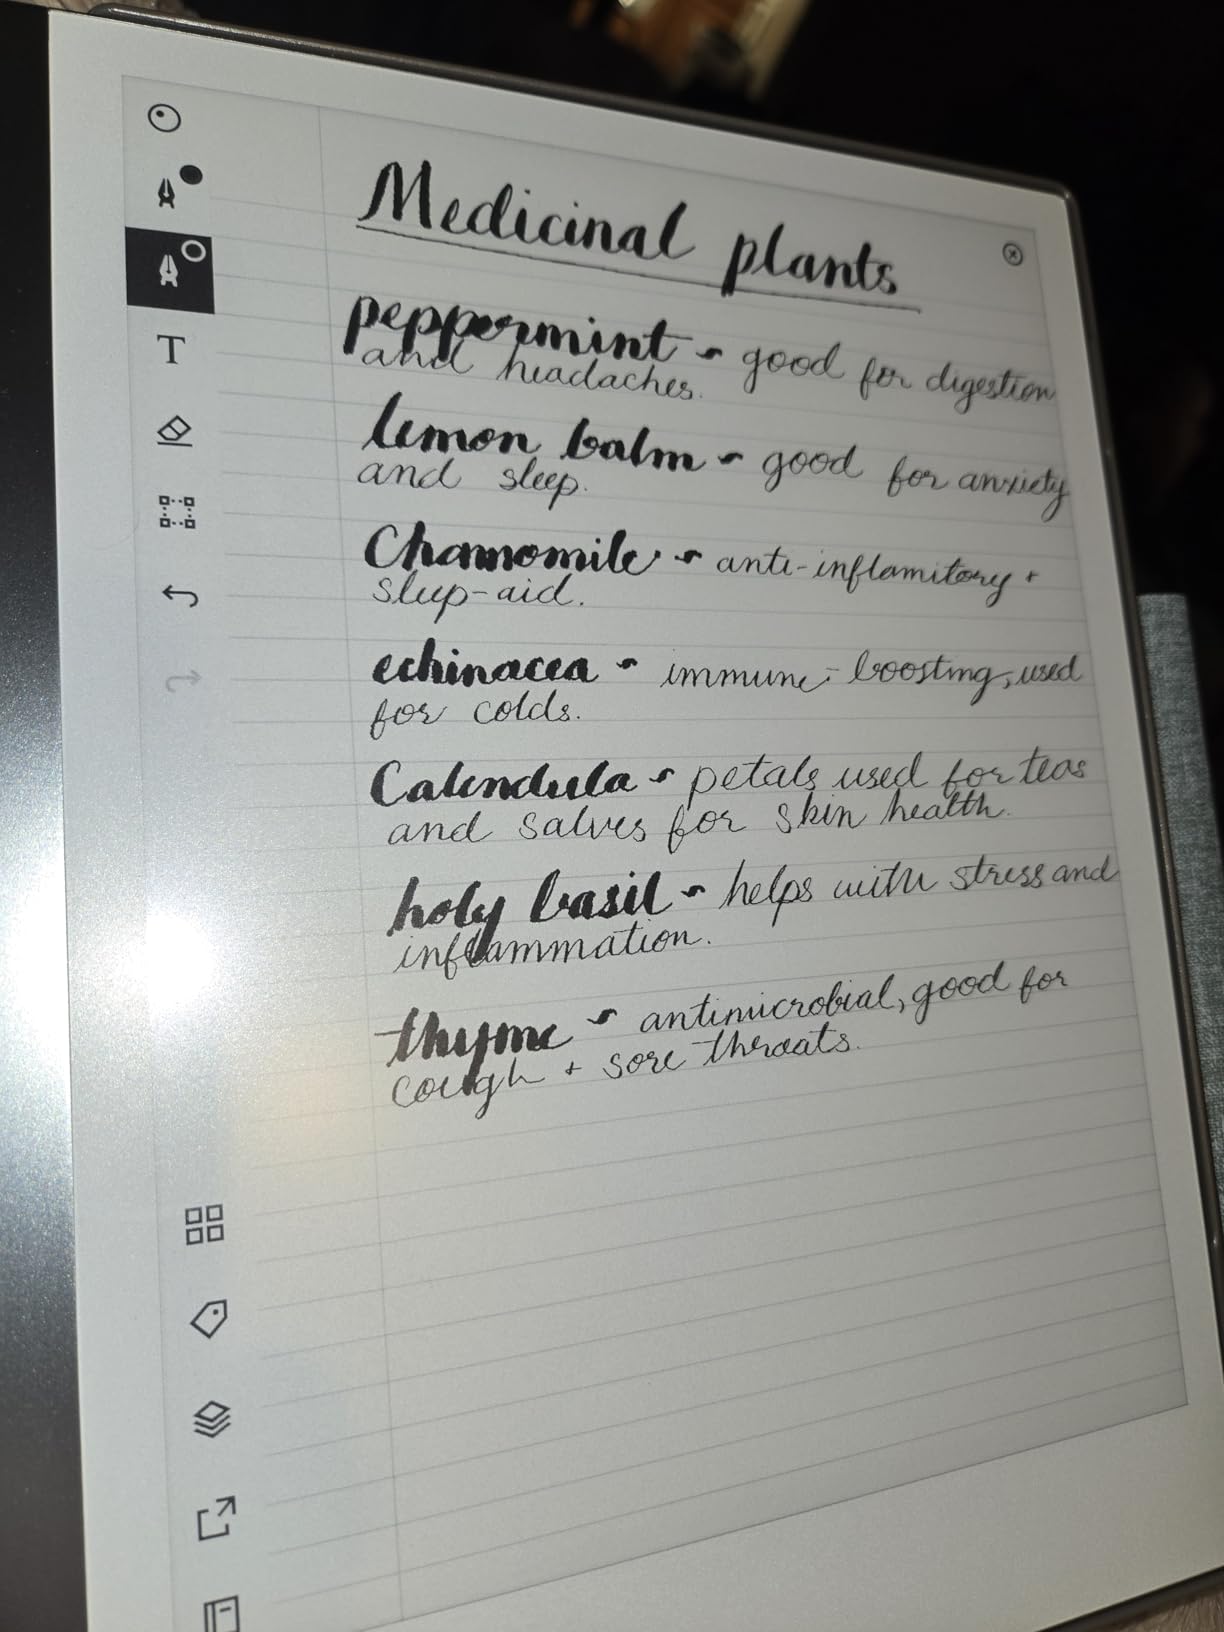 Medicinal plants
peppermint ~ good for digestion
and headaches.
lemon balm ~ good for anxiety
and sleep.
Chamomile ~ anti-inflamitory +
sleep-aid.
echinacea ~ immune-boosting, used
for colds.
Calendula ~ petals used for teas
and salves for skin health.
holy basil ~ helps with stress and
inflammation.
thyme ~ antimicrobial, good for
cough + sore throats.
T